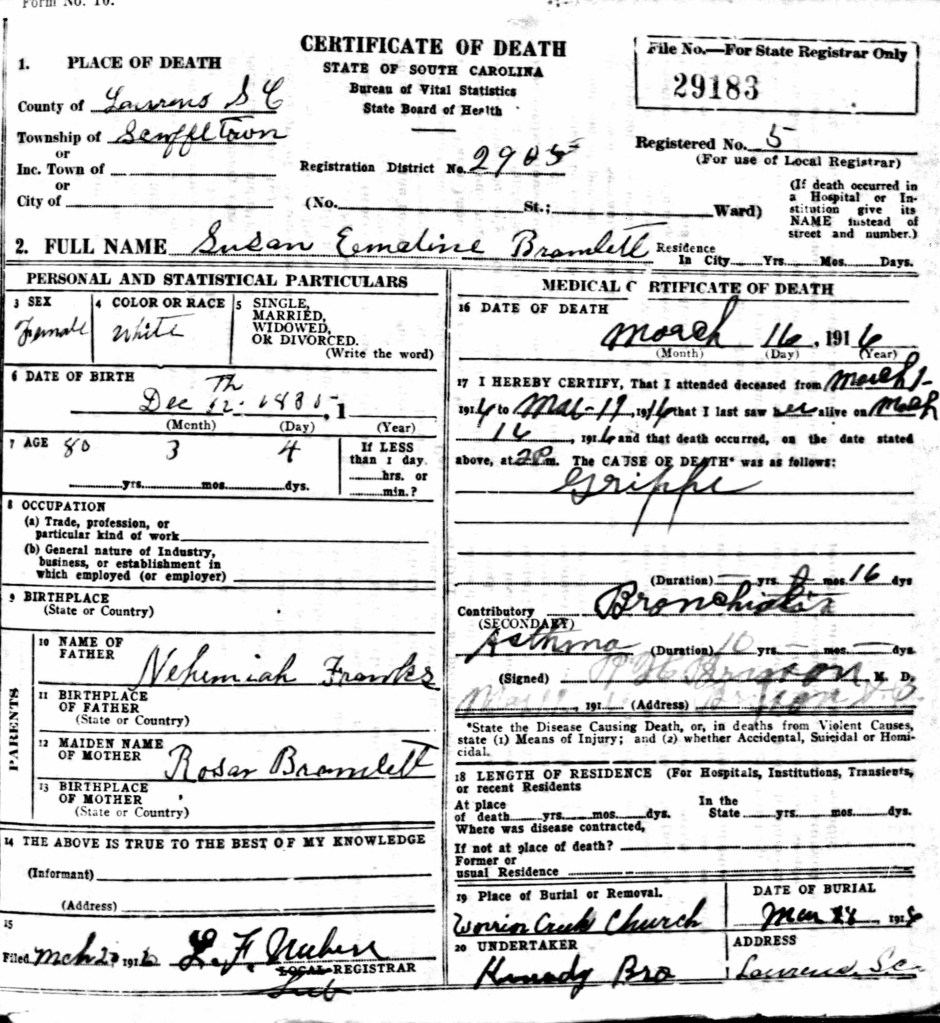 Form No. 10.
CERTIFICATE OF DEATH
STATE OF SOUTH CAROLINA
Bureau of Vital Statistics
State Board of Health
File No.—For State Registrar Only
29183
1. PLACE OF DEATH
County of Laurens S C
Township of Scuffletown
or
Inc. Town of
or
City of
Registration District No. 2905
Registered No. 5
(For use of Local Registrar)
(No. St.; Ward)
(If death occurred in
a Hospital or In-
stitution give its
NAME instead of
street and number.)
2. FULL NAME Susan Emaline Bramlett
Residence
In City Yrs. Mos. Days.
PERSONAL AND STATISTICAL PARTICULARS
3 SEX
Female
4 COLOR OR RACE
White
5 SINGLE,
MARRIED,
WIDOWED,
OR DIVORCED.
(Write the word)
6 DATE OF BIRTH
Dec 12th 1835, 1
(Month) (Day) (Year)
7 AGE 80 3 4
yrs. mos. dys.
If LESS
than 1 day
hrs. or
min.?
8 OCCUPATION
(a) Trade, profession, or
particular kind of work
(b) General nature of Industry,
business, or establishment in
which employed (or employer)
9 BIRTHPLACE
(State or Country)
PARENTS
10 NAME OF
FATHER
Nehemiah Franks
11 BIRTHPLACE
OF FATHER
(State or Country)
12 MAIDEN NAME
OF MOTHER
Rosar Bramlett
13 BIRTHPLACE
OF MOTHER
(State or Country)
14 THE ABOVE IS TRUE TO THE BEST OF MY KNOWLEDGE
(Informant)
(Address)
15
Filed Mch 20 1916 L. F.
LOCAL REGISTRAR
Sub
MEDICAL C RTIFICATE OF DEATH
16 DATE OF DEATH
March 16, 1916
(Month) (Day) (Year)
17 I HEREBY CERTIFY, That I attended deceased from March 1-
1916 to Mar-17, 1916 that I last saw her alive on March
16, 1916 and that death occurred, on the date stated
above, at 2 P m. The CAUSE OF DEATH* was as follows:
Grippe
(Duration) — yrs. 0 mos. 16 dys
Contributory Bronchial
(SECONDARY)
Asthma (Duration) 10 yrs. — mos. — dys.
(Signed) M. D.
, 191 (Address)
*State the Disease Causing Death, or, in deaths from Violent Causes,
state (1) Means of Injury; and (2) whether Accidental, Suicidal or Homi-
cidal.
18 LENGTH OF RESIDENCE (For Hospitals, Institutions, Transients,
or recent Residents
At place
of death yrs. mos. dys.
In the
State yrs. mos. dys.
Where was disease contracted,
If not at place of death?
Former or
usual Residence
19 Place of Burial or Removal.
Worrior Creek Church
DATE OF BURIAL
Mar 18, 1916
20 UNDERTAKER
Kenady Bro
ADDRESS
Laurens, S.C.